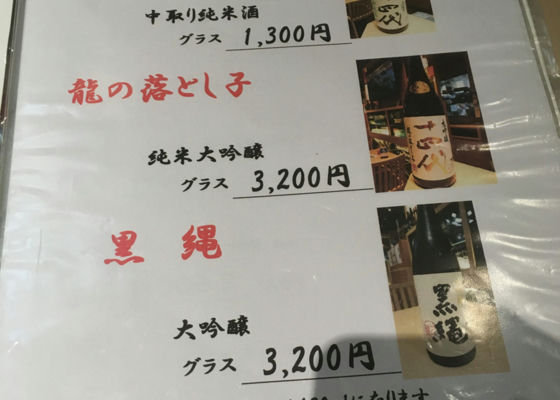 中取り純米酒
グラス 1,300円
龍の落とし子
純米大吟醸
グラス 3,200円
黒縄
大吟醸
グラス 3,200円
十四代
黒縄
になります